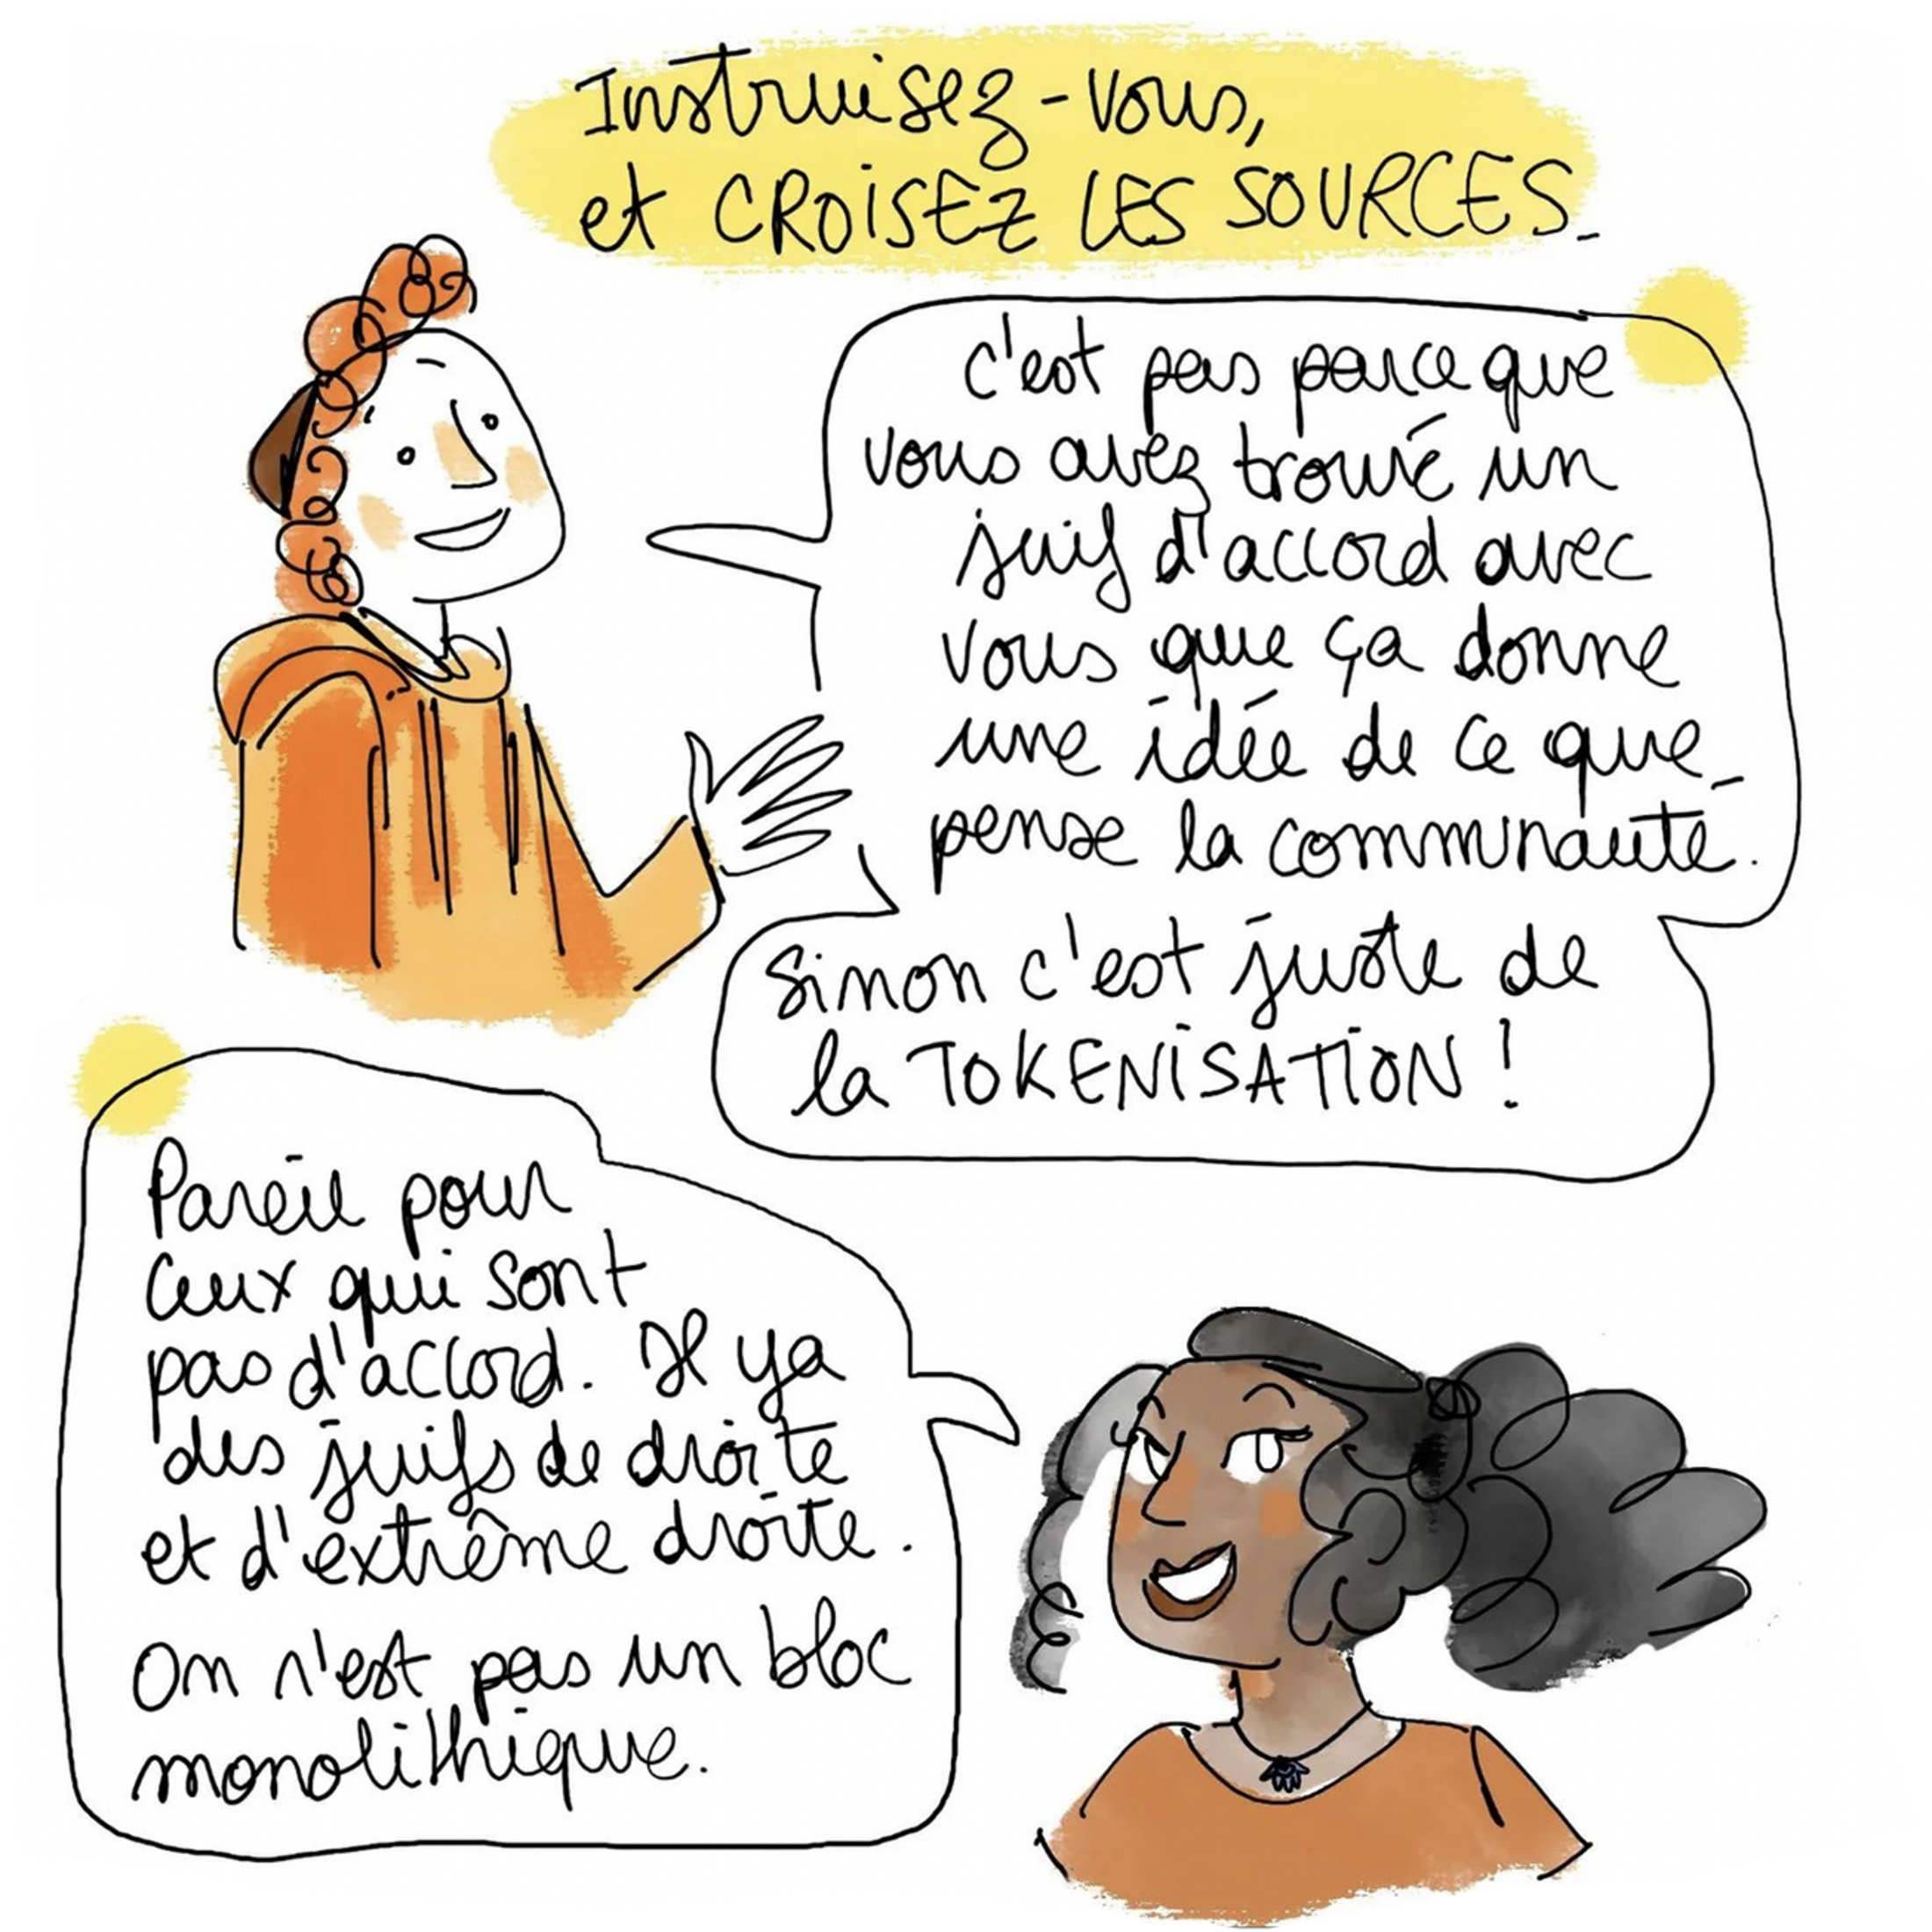 Instruisez-vous,
et CROISEZ LES SOURCES.
c'est pas parce que
vous avez trouvé un
juif d'accord avec
vous que ça donne
une idée de ce que
pense la communauté.
Sinon c'est juste de
la TOKENISATION !
Pareil pour
ceux qui sont
pas d'accord. Il y a
des juifs de droite
et d'extrême droite.
On n'est pas un bloc
monolithique.